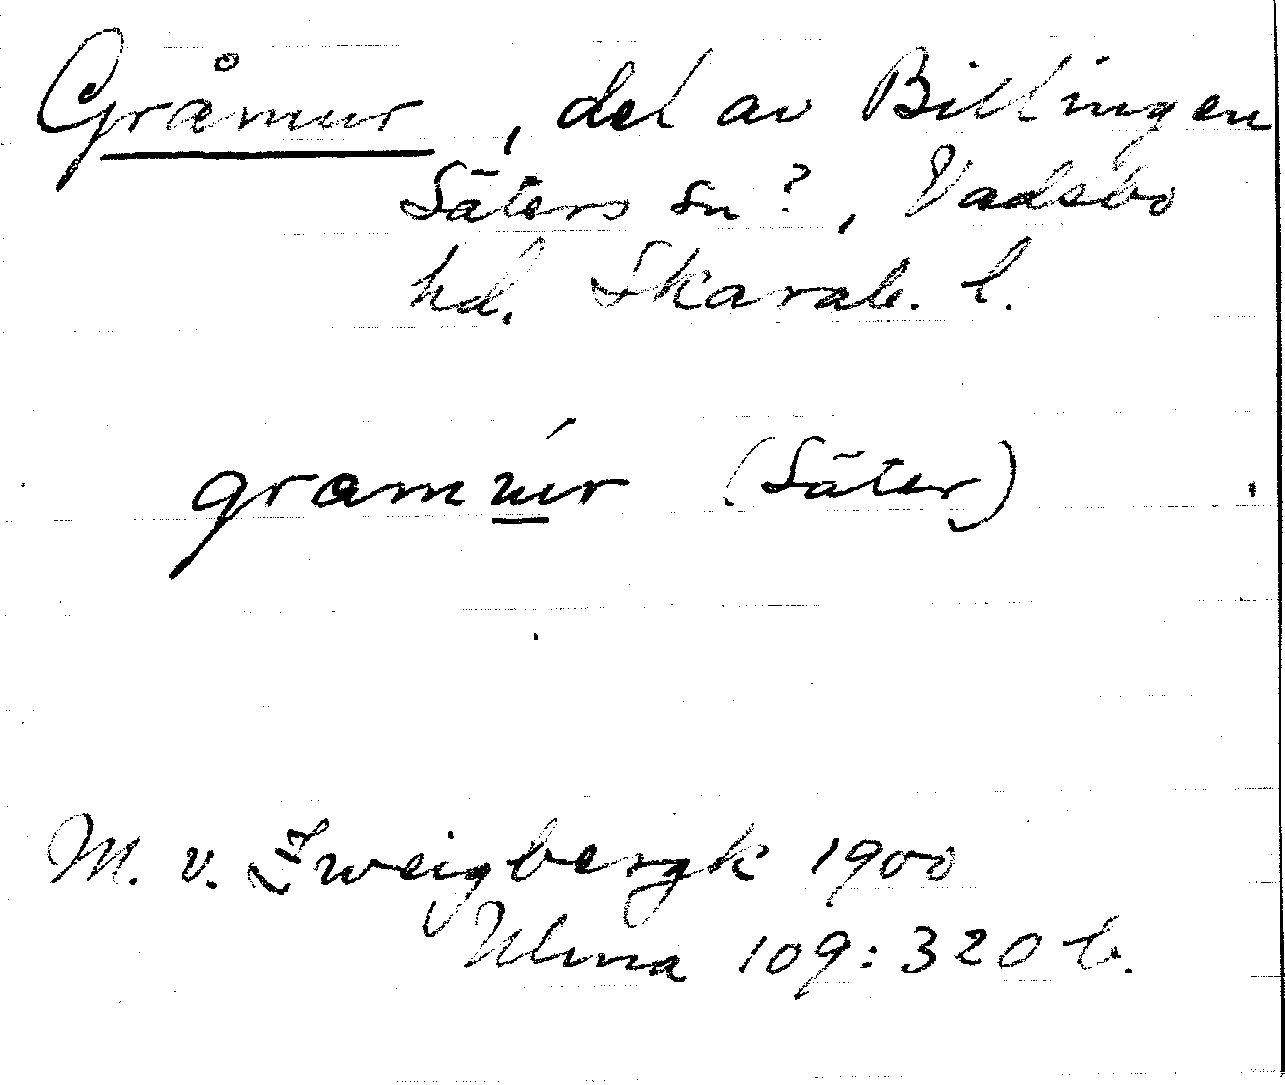 Gråmur, del av Billingen
Säters sn?, Vadsbo
hd. Skarab. l.
gramúr (Säter)
M. v. Zweigbergk 1900
Ulma 109:320 b.